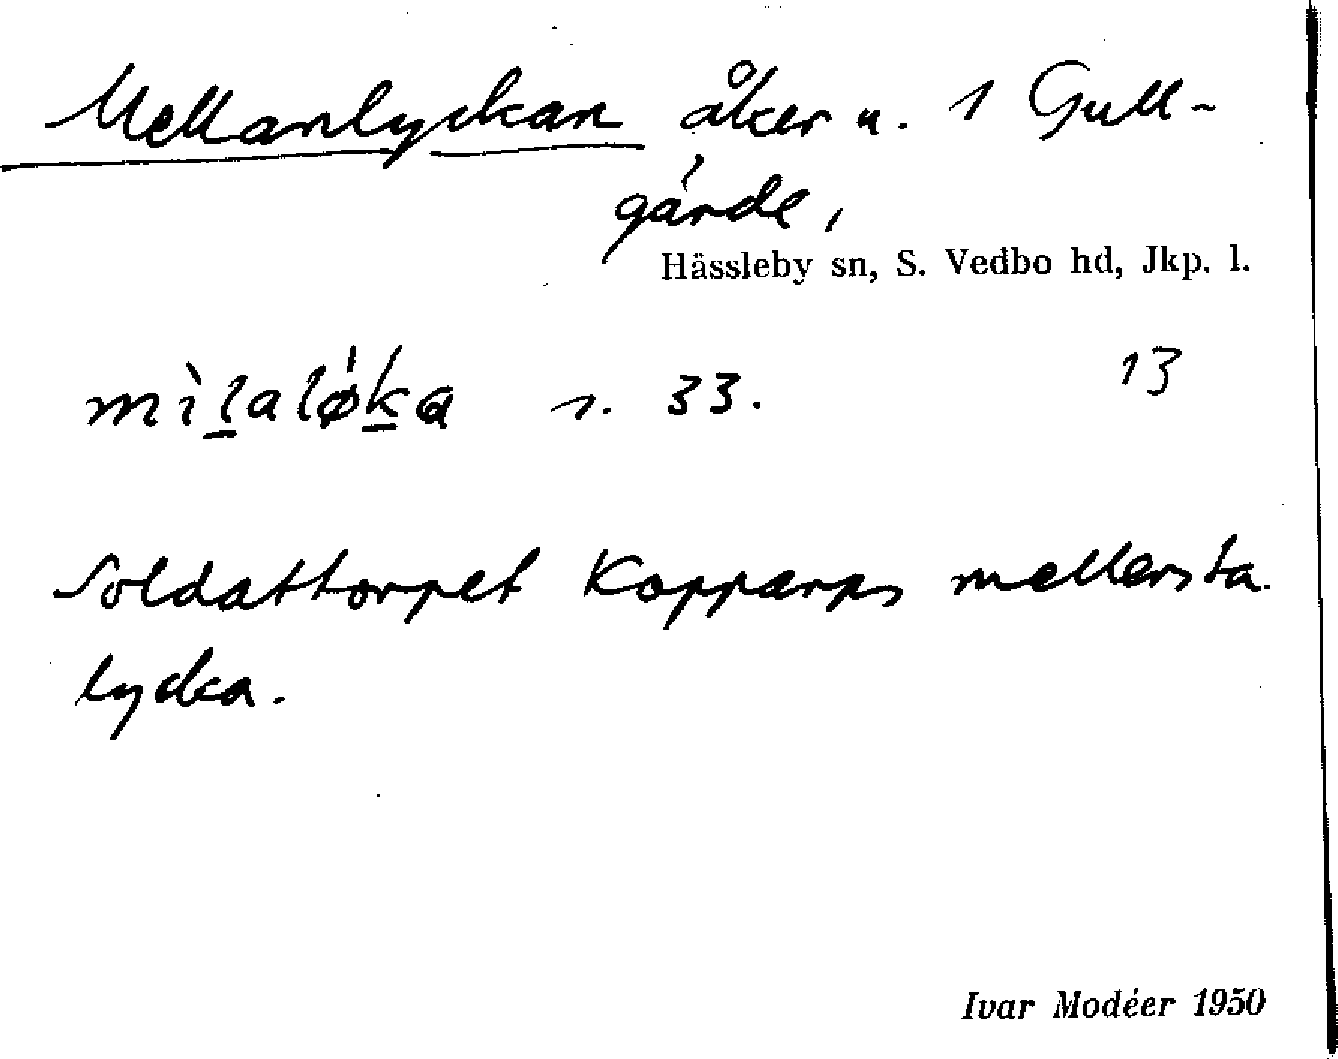 Mellanlyckan åker u. 1 Gull-
gärde,
Hässleby sn, S. Vedbo hd, Jkp. l.
mìl̲alø̍k̲a s. 33. 13
Soldattorpet Kopparps mellersta
lycka.
Ivar Modéer 1950